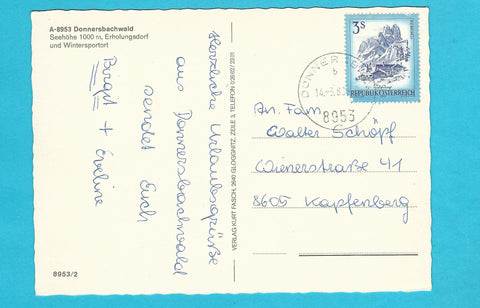 A-8953 Donnersbachwald
Seehöhe 1000 m, Erholungsdorf
und Wintersportort
Herzliche Urlaubsgrüße
aus Donnersbachwald
sendet Euch
Birgit + Eveline
8953/2
VERLAG KURT FASCH, 2640 GLOGGNITZ, ZEILE 3, TELEFON 0 26 62 / 22 31
3S
REPUBLIK ÖSTERREICH
8953
An Fam.
Walter Schöpf
Wienerstraße 41
8605 Kapfenberg